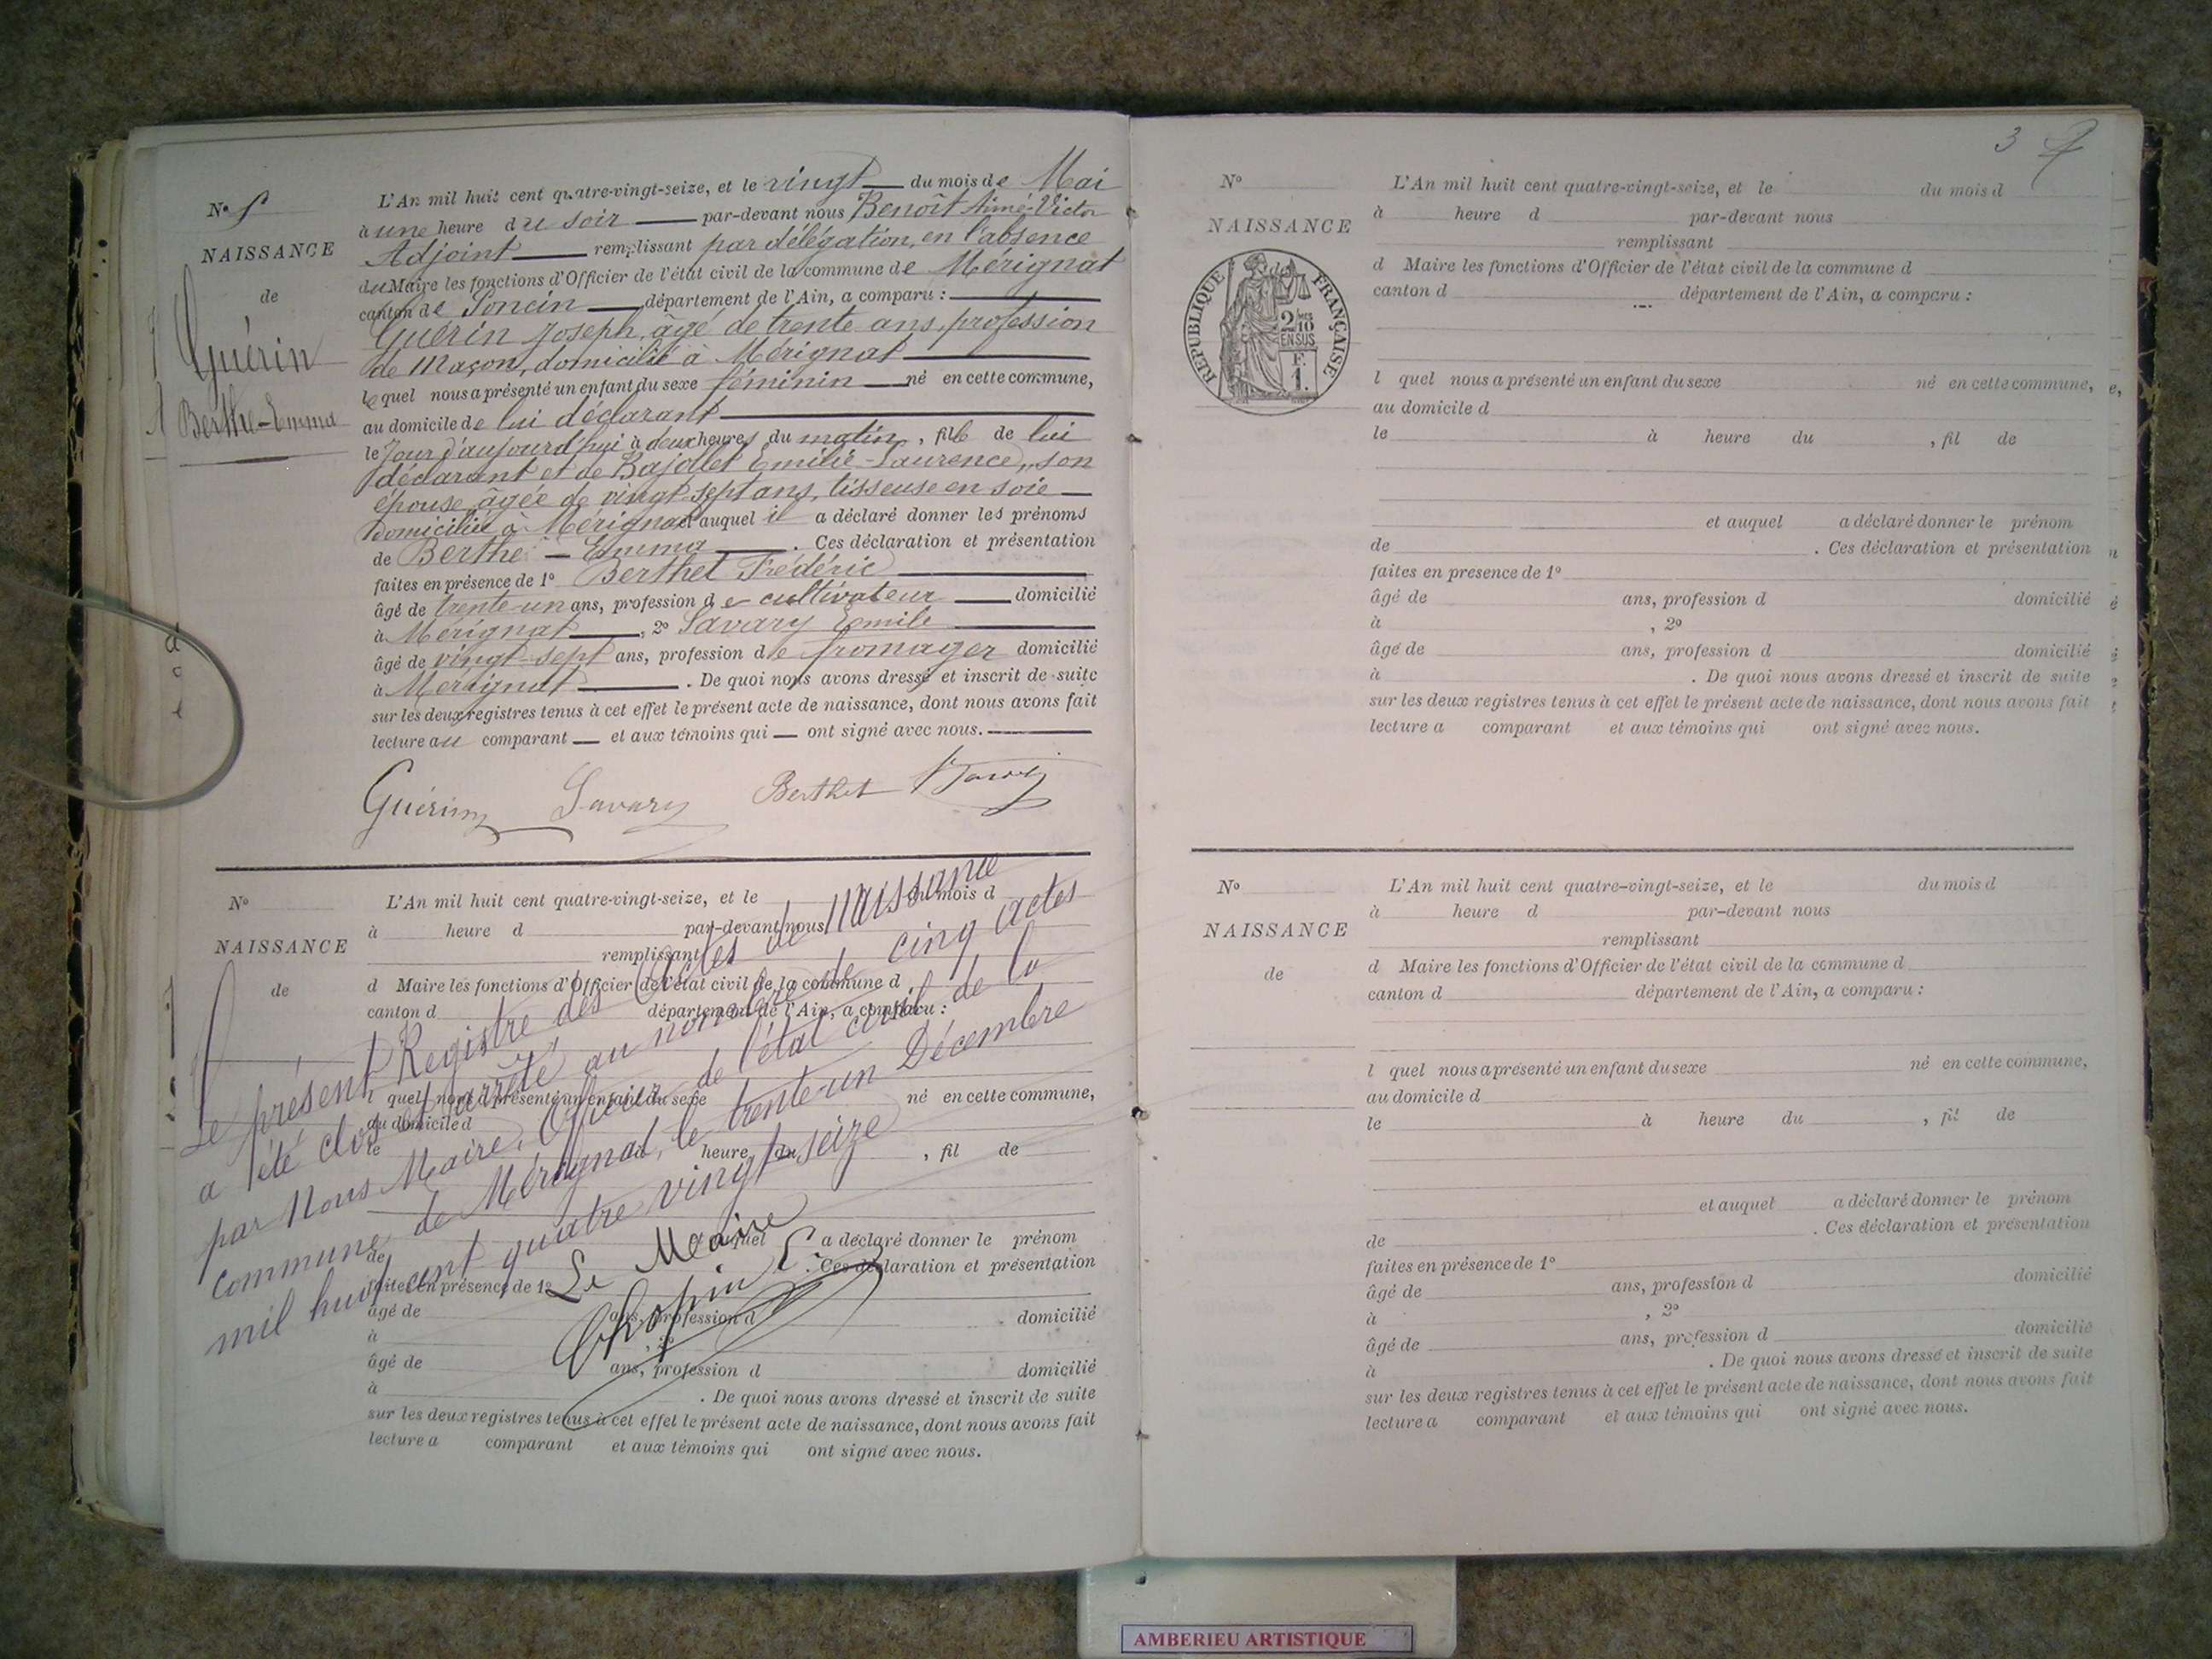 N° 5
NAISSANCE
de
Guérin
Berthe-Emma
L'An mil huit cent quatre-vingt-seize, et le vingt du mois de Mai
à une heure du soir par-devant nous Benoît Aimé-Victor
Adjoint remplissant par délégation, en l'absence
du Maire les fonctions d'Officier de l'état civil de la commune de Mérignat
canton de Poncin département de l'Ain, a comparu :
Guérin Joseph, âgé de trente ans, profession
de Maçon, domicilié à Mérignat
lequel nous a présenté un enfant du sexe féminin né en cette commune,
au domicile de lui déclarant
le Jour d'aujourd'hui à deux heures du matin, fille de lui
déclarant et de Bajollet Emilie-Laurence, son
épouse, âgée de vingt-sept ans, tisseuse en soie
domiciliée à Mérignat et auquel il a déclaré donner les prénoms
de Berthe-Emma. Ces déclaration et présentation
faites en présence de 1° Berthet Frédéric
âgé de trente-un ans, profession de cultivateur domicilié
à Mérignat, 2° Savary Emile
âgé de vingt-sept ans, profession de fromager domicilié
à Mérignat. De quoi nous avons dressé et inscrit de suite
sur les deux registres tenus à cet effet le présent acte de naissance, dont nous avons fait
lecture au comparant et aux témoins qui ont signé avec nous.
Guérin Savary Berthet
N°
NAISSANCE
de
L'An mil huit cent quatre-vingt-seize, et le du mois d
à heure d par-devant nous
remplissant
d Maire les fonctions d'Officier de l'état civil de la commune d
canton d département de l'Ain, a comparu :
l quel nous a présenté un enfant du sexe né en cette commune,
au domicile d
le à heure du , fil de
et auquel a déclaré donner le prénom
de . Ces déclaration et présentation
faites en présence de 1°
âgé de ans, profession d domicilié
à , 2°
âgé de ans, profession d domicilié
à . De quoi nous avons dressé et inscrit de suite
sur les deux registres tenus à cet effet le présent acte de naissance, dont nous avons fait
lecture a comparant et aux témoins qui ont signé avec nous.
Le présent Registre des Actes de Naissance
a été clos et arrêté au nombre de cinq actes
par Nous Maire, Officier de l'état civil de la
commune de Mérignat, le trente-un Décembre
mil huit cent quatre vingt seize
Le Maire
Chapuis
3
N°
NAISSANCE
de
REPUBLIQUE FRANÇAISE
2/10
EN SUS
F.
1.
L'An mil huit cent quatre-vingt-seize, et le du mois d
à heure d par-devant nous
remplissant
d Maire les fonctions d'Officier de l'état civil de la commune d
canton d département de l'Ain, a comparu :
l quel nous a présenté un enfant du sexe né en cette commune,
au domicile d
le à heure du , fil de
et auquel a déclaré donner le prénom
de . Ces déclaration et présentation
faites en presence de 1°
âgé de ans, profession d domicilié
à , 2°
âgé de ans, profession d domicilié
à . De quoi nous avons dressé et inscrit de suite
sur les deux registres tenus à cet effet le présent acte de naissance, dont nous avons fait
lecture a comparant et aux témoins qui ont signé avec nous.
N°
NAISSANCE
de
L'An mil huit cent quatre-vingt-seize, et le du mois d
à heure d par-devant nous
remplissant
d Maire les fonctions d'Officier de l'état civil de la commune d
canton d département de l'Ain, a comparu :
l quel nous a présenté un enfant du sexe né en cette commune,
au domicile d
le à heure du , fil de
et auquel a déclaré donner le prénom
de . Ces déclaration et présentation
faites en présence de 1°
âgé de ans, profession d domicilié
à , 2°
âgé de ans, profession d domicilié
à . De quoi nous avons dressé et inscrit de suite
sur les deux registres tenus à cet effet le présent acte de naissance, dont nous avons fait
lecture a comparant et aux témoins qui ont signé avec nous.
AMBERIEU ARTISTIQUE